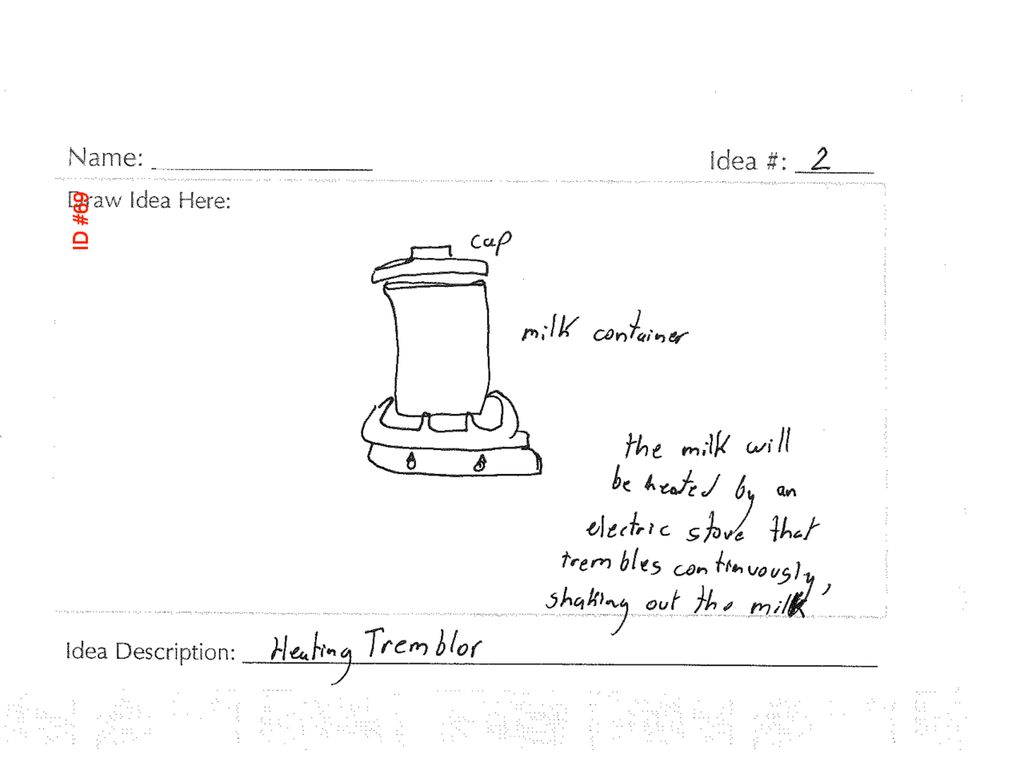 Name:
Idea #: 2
Draw Idea Here:
ID #69
cap
milk container
the milk will
be heated by an
electric stove that
trembles continuously,
shaking out the milk
Idea Description: Heating Tremblor